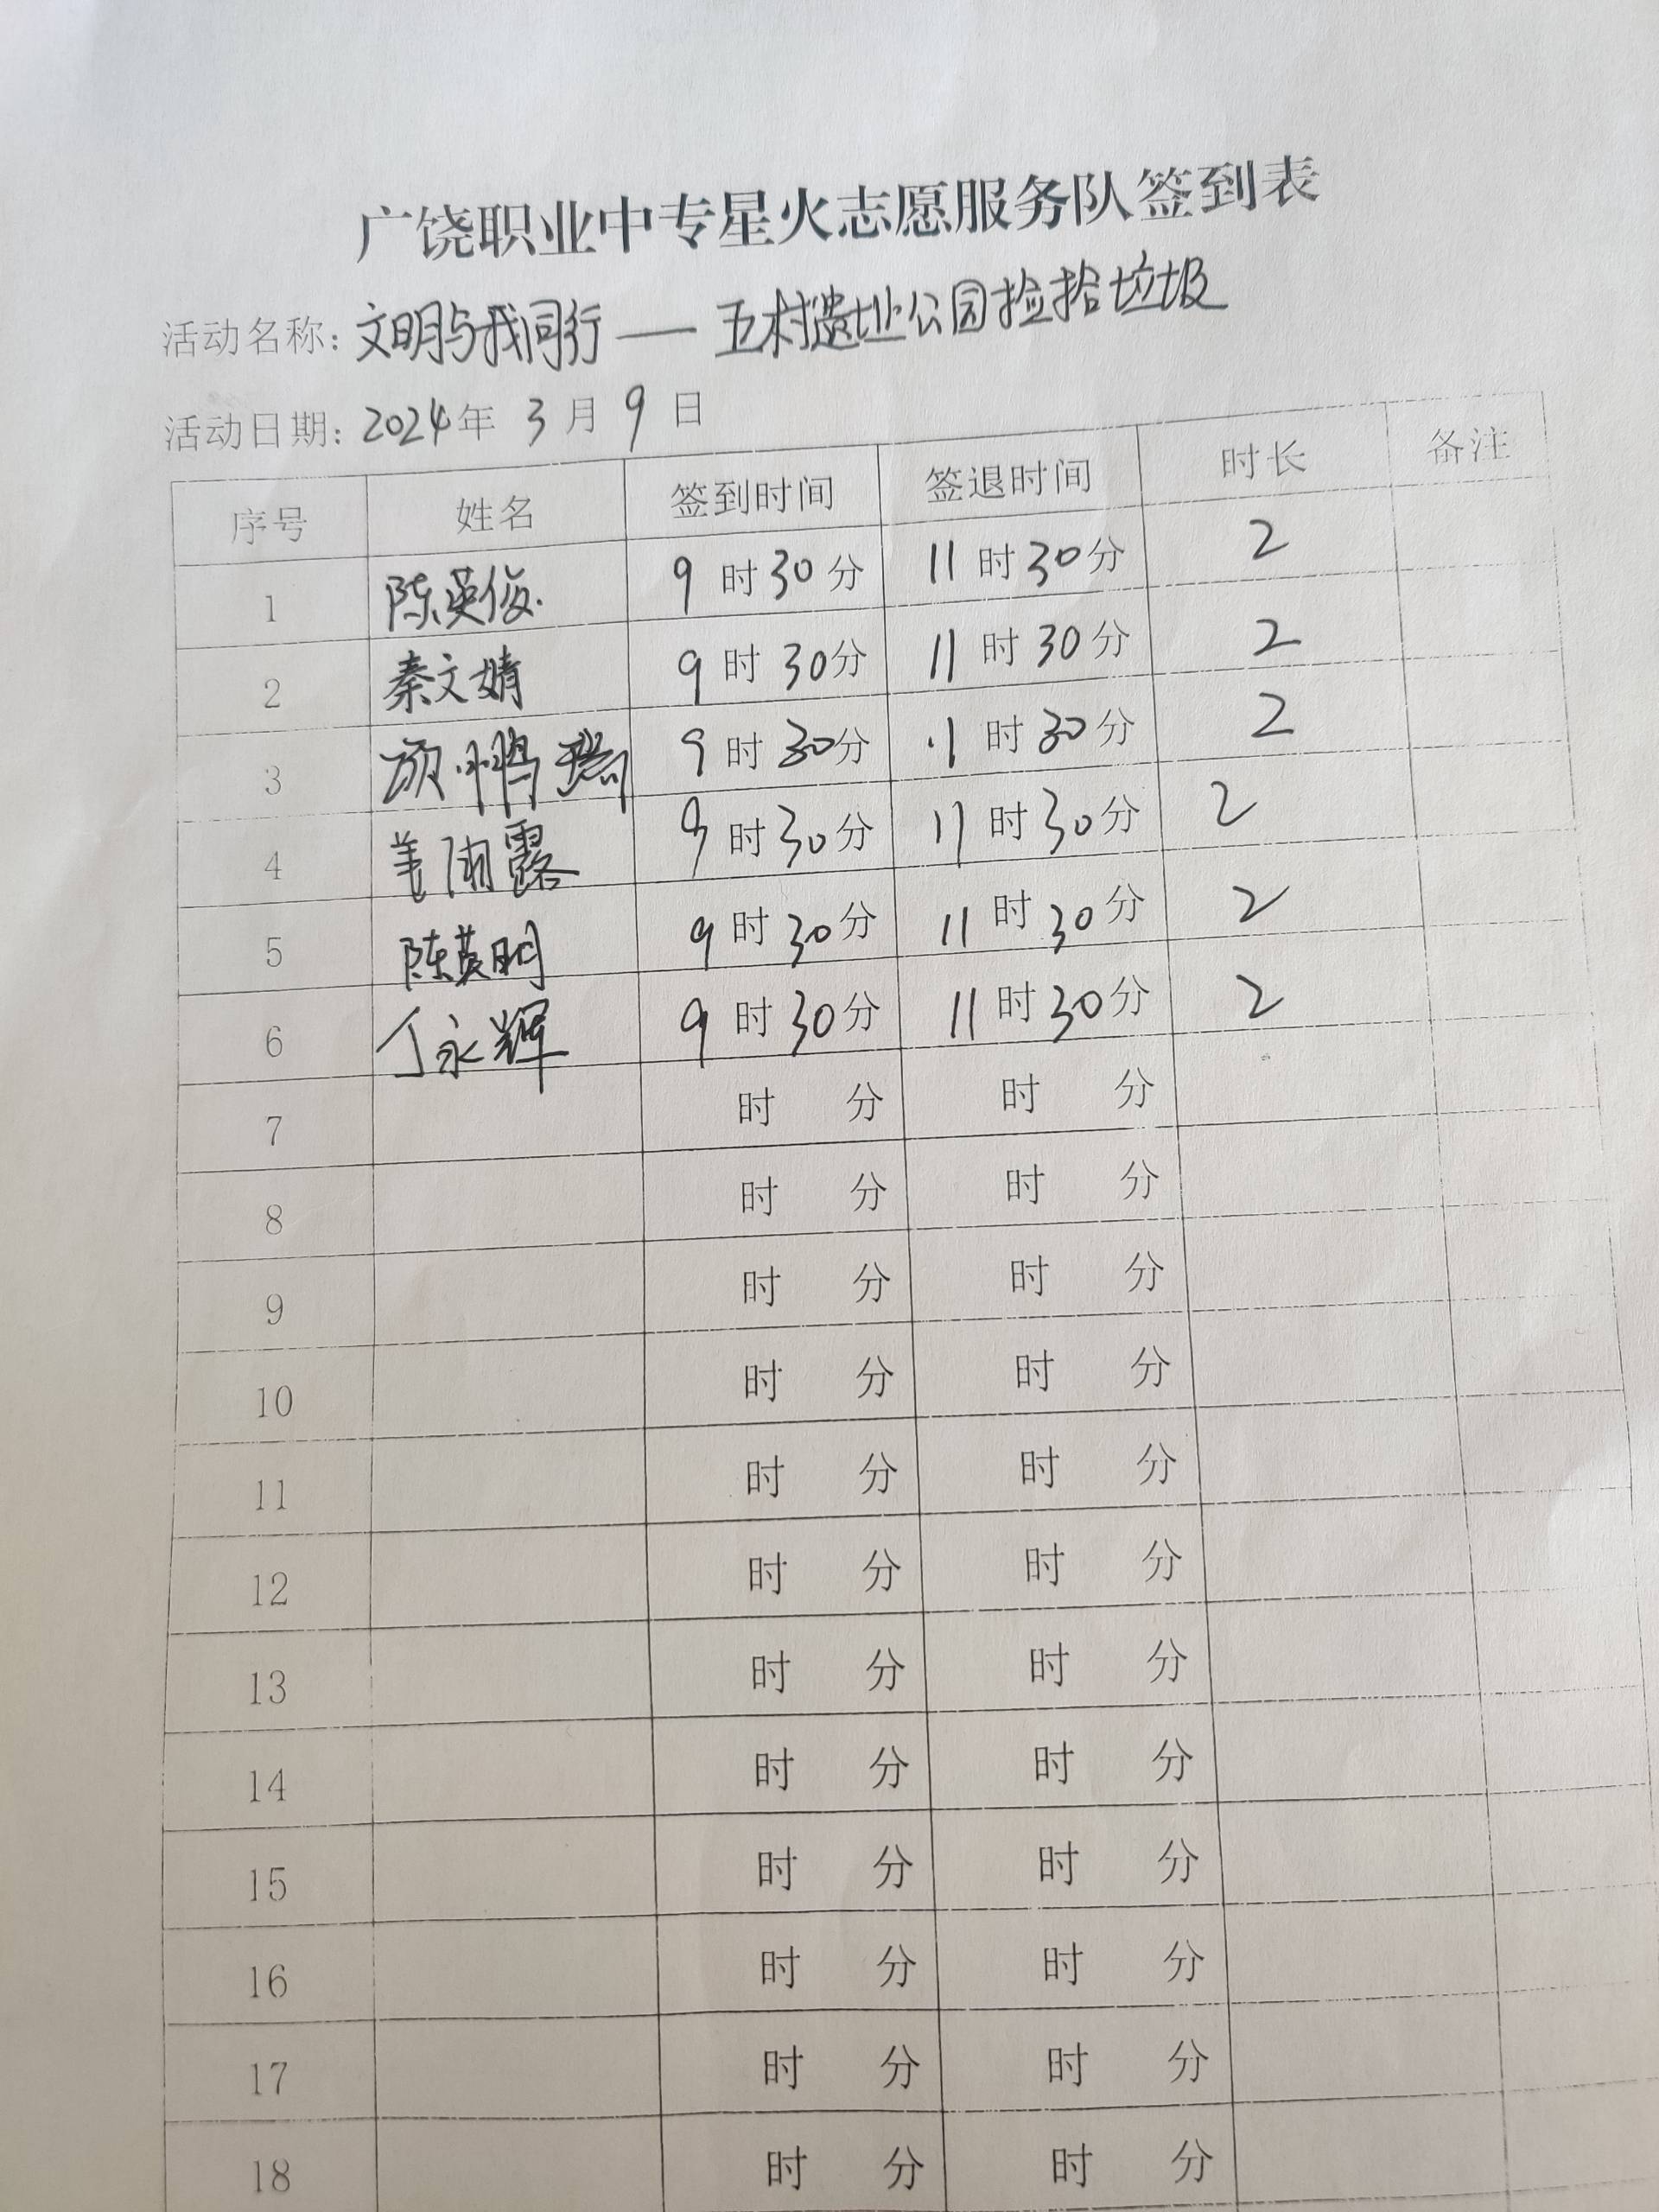 广饶职业中专星火志愿服务队签到表
活动名称：文明与我同行——五村遗址公园捡拾垃圾
活动日期：2024年 3月 9日
序号 姓名 签到时间 签退时间 时长 备注
1 陈英俊 9时30分 11时30分 2
2 秦文婧 9时30分 11时30分 2
3 顾鹏瑞 9时30分 11时30分 2
4 姜雨露 9时30分 11时30分 2
5 陈英明 9时30分 11时30分 2
6 丁永辉 9时30分 11时30分 2
7 时 分 时 分
8 时 分 时 分
9 时 分 时 分
10 时 分 时 分
11 时 分 时 分
12 时 分 时 分
13 时 分 时 分
14 时 分 时 分
15 时 分 时 分
16 时 分 时 分
17 时 分 时 分
18 时 分 时 分